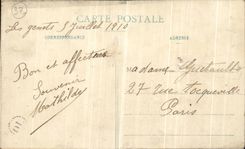 37
CARTE POSTALE
Les genets 5 Juillet 1913
CORRESPONDANCE
ADRESSE
Bon et affectueux
Souvenir
Mathilde
Madame
27 rue Tocqueville
Paris